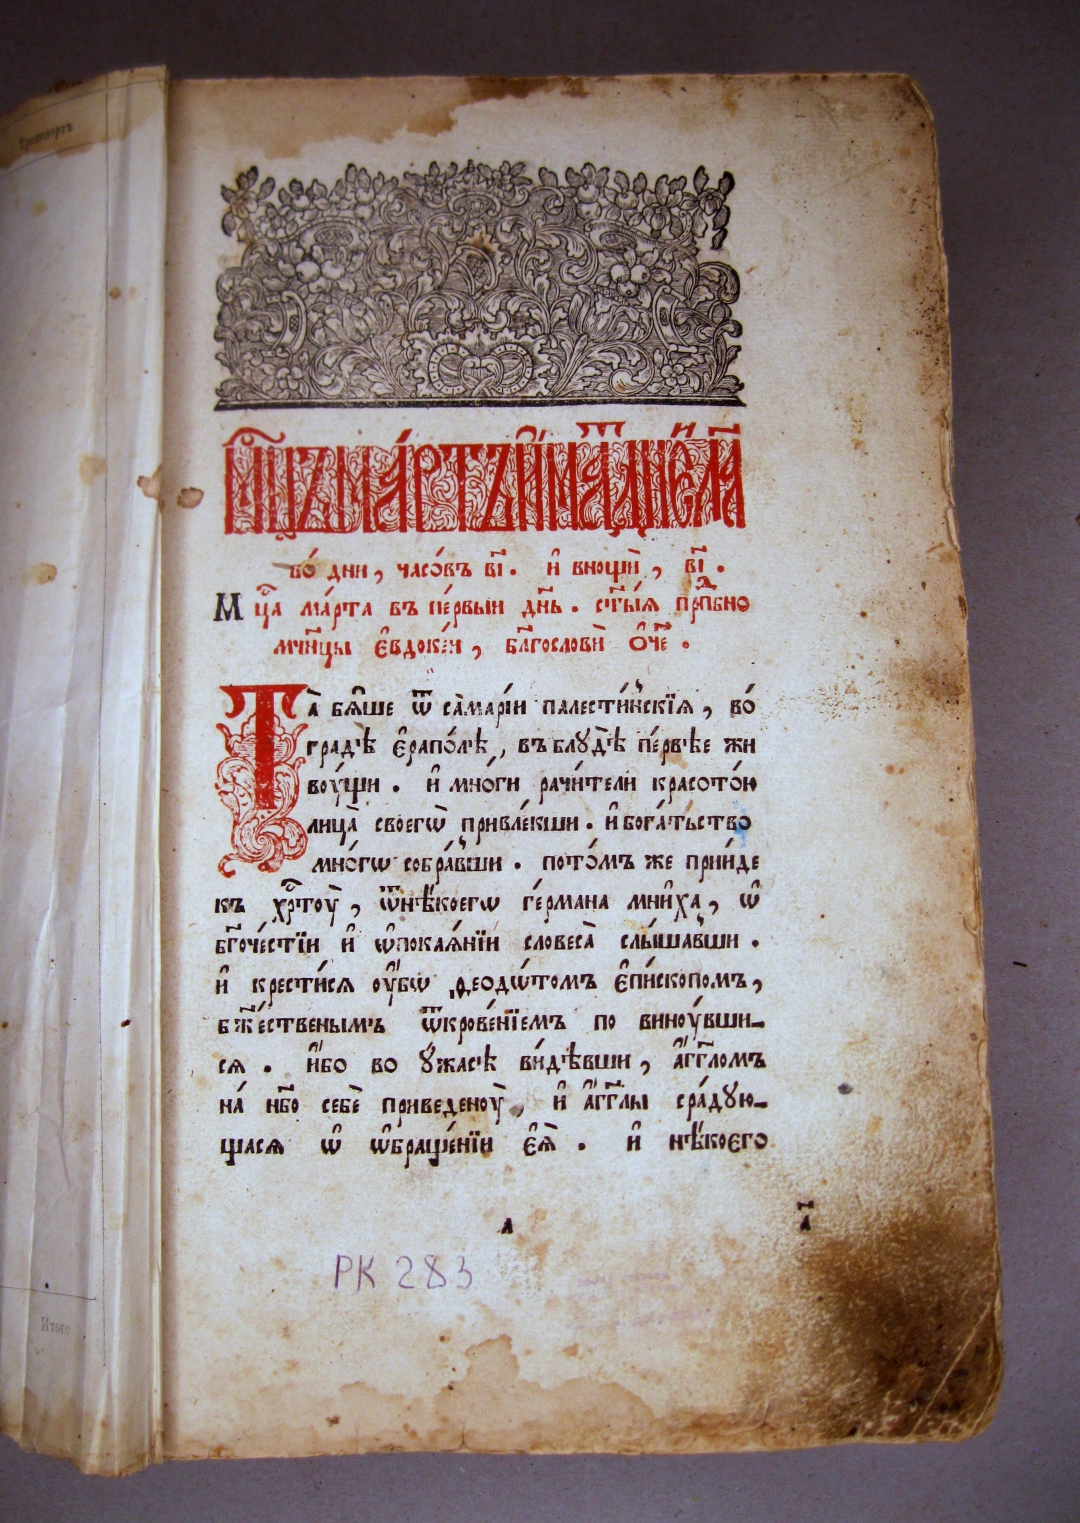 Транспортъ
Мц҃ъ ма́ртъ и҆́мат дн҃и л҃а
во́ дни, часо́въ в҃і. и҆ внощѝ, в҃і.
Мц҃а ма́рта въ пе́рвыи дн҃ь. ст҃ы́ѧ прп҃бно
мч҃нцы є҆вдокѐи, бл҃гословѝ ѻ҆́ч҃е.
Та̀ бѧ́ше ѿ сама́ри́и палести́нскїѧ, во́
гра́дѣ є҆рапо́лѣ, въ блу́дѣ̀ пе́рвѣе жи
воу́щи. и҆ мно́ги рачи́тели красото́ю
лица̀ своегѡ̀ привле́кши. и҆ бога́тьство
мно́гѡ собра́вши. пото́мъ же прии́де
къ хр҃тоу̀, ѿ нѣ́коегѡ ге́рмана мни́ха, ѡ҆
бл҃гоче́стїи и҆ ѡ҆покаѧ́нїи словеса̀ слы́шавши.
и҆ крести́сѧ оу҆́бѡ ѳеодѡ́томъ є҆пи́скопомъ,
бж҃е́ственымъ ѿкрове́нїемъ по виноу́вши-
сѧ. и҆́бо во у҆́жасѣ ви́дѣвши, а҆́гг҃ломъ
на́ нб҃о себѐ приведеноу̀, и҆ а҆́гг҃лы сра́дую-
щасѧ ѡ҆ ѡ҆браще́нїи є҆ѧ̀. и҆ нѣ́коєго
а
а҃
РК 283
Итого